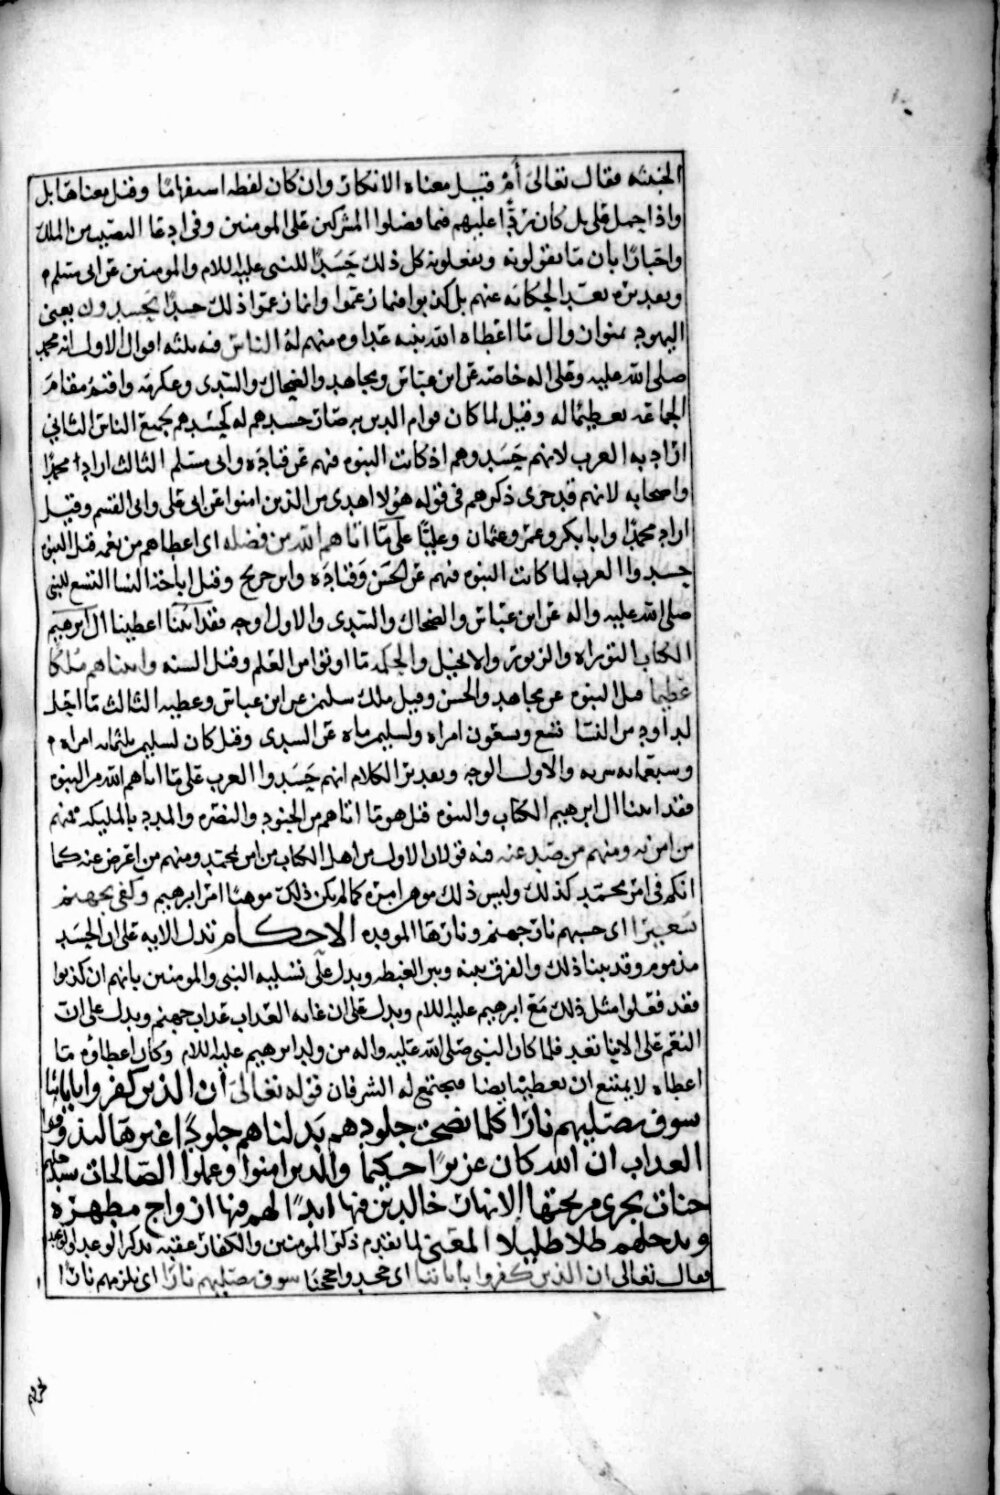 الخبيثه فقال تعالى أم قيل معناه الانكار وان كان لفظه استفهامًا وقيل معناها بل
واذا حمل على بل كان ردًّا عليهم فيما فضلوا المشركين على المومنين وفى ادعا النصيب من الملك
واخبارًا بان ما يقولونه ويفعلونه كل ذلك حسدًا للنبى عليه السلام والمومنين عن ابى مسلم
وتقديره بعد الحكايه عنهم بل كذبوا فيما زعموا وانما زعموا ذلك حسدًا يحسدون يعنى
اليهود يتمنوان وال ما اعطاه الله نبيه عداوه منهم له الناس فيه ثلثه اقوال الاول انه محمد
صلى الله عليه وعلى اله خاصه عن ابن عباس ومجاهد والضحاك والسدى وعكرمه واقيم مقام
الجماعه تعظيمًا له وقيل لما كان قوام الدين به صار حسدهم له كحسدهم لجميع الناس الثانى
اراد به العرب لانهم حسدوهم اذ كانت النبوه فيهم عن قتاده وابى مسلم الثالث اراد محمدًا
واصحابه لانهم قد جرى ذكرهم فى قوله هولا اهدى من الذين امنوا عن ابى على وابى القسم وقيل
اراد محمدًا وابا بكر وعمر وعثمان وعليًا على ما اتاهم الله من فضله اى اعطاهم من نعمه قيل النبوه
حسدوا العرب لما كانت النبوه فيهم عن الحسن وقتاده وابن جريج وقيل اباحه النسا التسع للنبى
صلى الله عليه واله عن ابن عباس والضحاك والسدى والاول اوجه فقد اتينا اعطينا ال ابرهيم
الكتاب التوراه والزبور والانجيل والحكمه ما اوتوا من العلم وقيل السنه واتيناهم ملكًا
عظيما قيل النبوه عن مجاهد والحسن وقيل ملك سليمن عن ابن عباس وعطيه الثالث ما احل
لداود من النسا تسع وتسعون امراه ولسليمن مايه عن السدى وقيل كان لسليمن ثلثمايه امراه
وسبعمايه سريه والاول الوجه وتقدير الكلام انهم حسدوا العرب على ما اتاهم الله من النبوه
فقد اتينا ال ابرهيم الكتاب والنبوه قيل هو ما اتاهم من الجنود والنصره والمدد بالمليكه فمنهم
من امن به ومنهم من صد عنه فيه قولان الاول من اهل الكتاب من امن بمحمد ومنهم من اعرض عنه كما
انكم فى امر محمد كذلك وليس ذلك موهن امره كما لم يكن ذلك موهنًا امر ابرهيم وكفى بجهنم
سعيرًا اى حسبهم نار جهنم ونارها الموقده الاحكام تدل الايه على ان الحسد
مذموم وقد بينا ذلك والفرق بينه وبين الغبطه ويدل على تسليه النبى والمومنين بانهم ان كذبوا
فقد فعلوا مثل ذلك مع ابرهيم عليه السلام ويدل على ان غايه العذاب عذاب جهنم ويدل على ان
النعم على الابا نعم فلما كان النبى صلى الله عليه واله من ولد ابرهيم عليه السلام وكان اعطاوه ما
اعطاه لا يمتنع ان يعطيه ايضا فيجتمع له الشرفان قوله تعالى ان الذين كفروا باياتنا
سوف نصليهم نارًا كلما نضجت جلودهم بدلناهم جلودًا غيرها ليذوقوا
العذاب ان الله كان عزيزًا حكيما والذين امنوا وعملوا الصالحات سندخلهم
جنات تجرى من تحتها الانهار خالدين فيها ابدًا لهم فيها ازواج مطهره
وندخلهم ظلا ظليلا المعنى لما تقدم ذكر المومنين والكفار عقبه بذكر الوعد والوعيد
فقال تعالى ان الذين كفروا باياتنا اى جحدوا حججنا سوف نصليهم نارًا اى نلزمهم نارًا